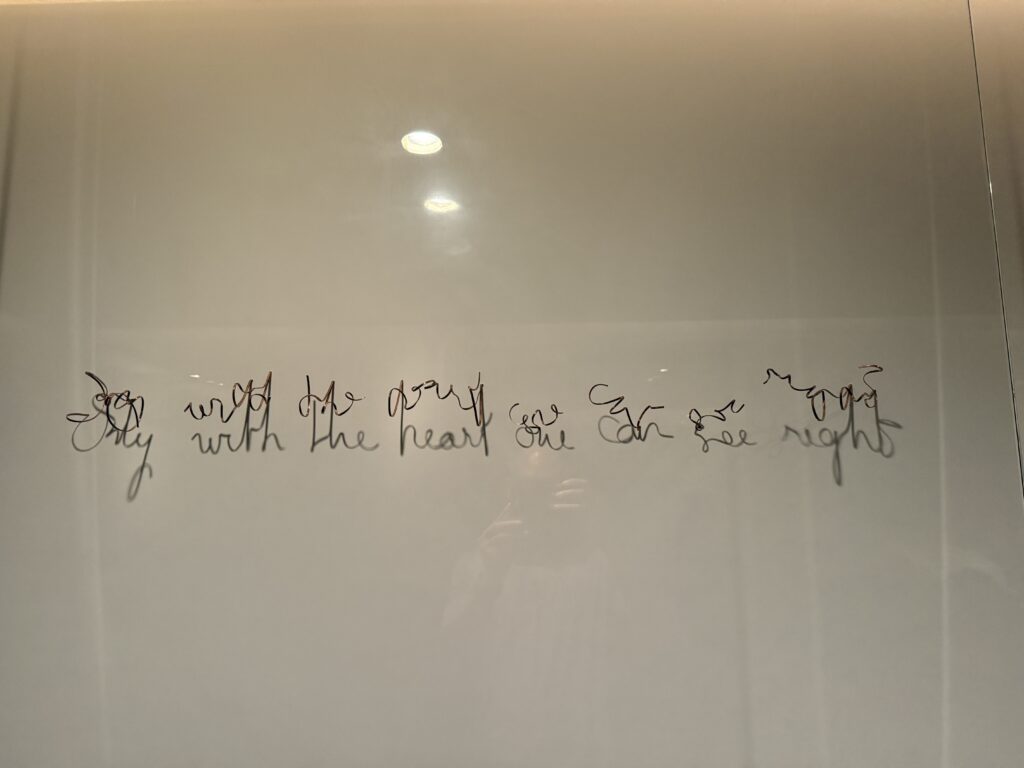 Only with the heart one can see right